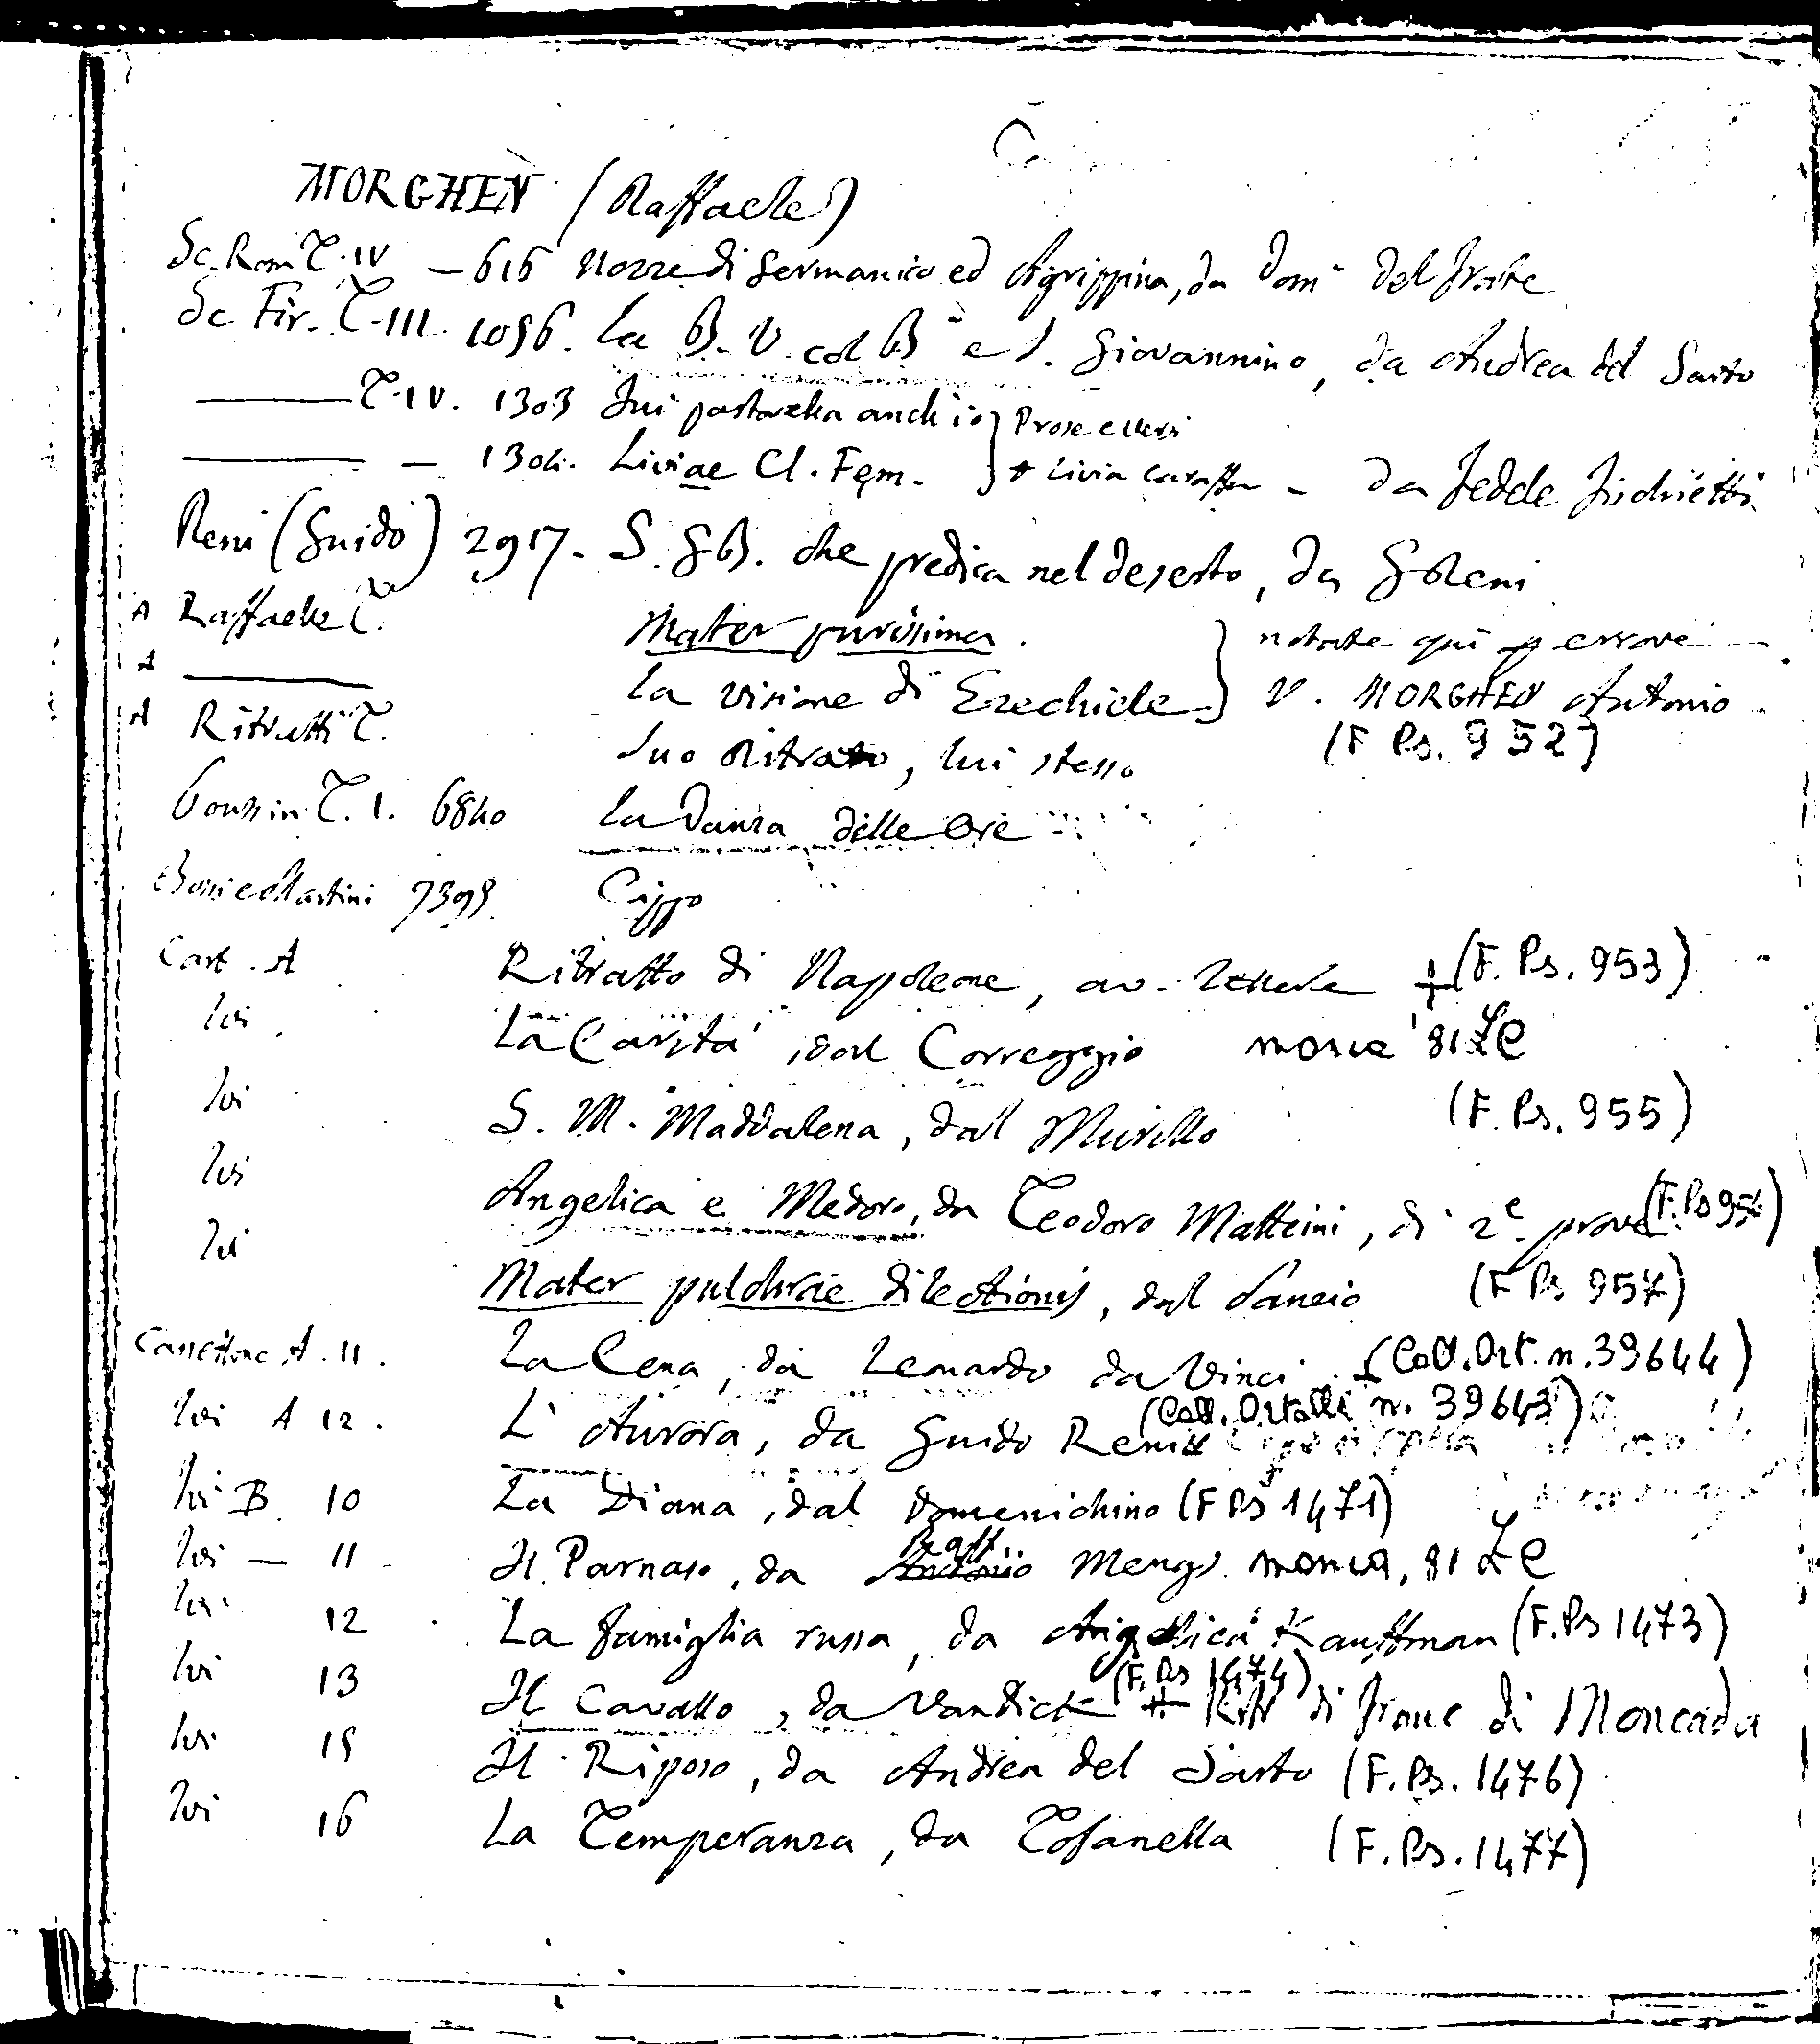 MORGHEN (Raffaele)
Sc. Rom. T. IV — 616 Nozze di Germanico ed Agrippina, da Dom.º Del Frate
Sc Fir. T. III. 1096. La B. V. col Bº e S. Giovannino, da Andrea del Sarto
——— T. IV. 1303 Fui pastorella anch'io } Prose e versi
——— — 1304. Liviae Cl. Fem. } + Livia Caraffa - da Fedele Fischietti
Reni (Guido) 2917. S. G. B. che predica nel deserto, da G. Reni
A Raffaelle T. Mater purissima. } notate qui p errore
A ——— La visione di Ezechiele } V. MORGHEN Antonio.
A Ritratti T. Suo Ritratto, lui stesso (F Ps. 952)
Poussin T. 1. 6840 La Danza delle Ore
Bossi e Martini 7398 Cippo
Cart. A Ritratto di Napoleone, av. lettere + (F. Ps. 953)
Ivi. La Carità, dal Correggio manca '81 LC
Ivi S. M. Maddalena, dal Murillo (F. Ps. 955)
Ivi Angelica e Medoro, da Teodoro Matteini, di 2e prove (F. Ps 956)
Ivi Mater pulchrae dilectionis, dal Sanzio (F Ps 957)
Cassettone A. 11. La Cena, da Leonardo da Vinci. + (Coll. Ort. n. 39644)
Ivi A 12. L'Aurora, da Guido Reni (Coll. Ortalli n. 39643)
Ivi B. 10 La Diana, dal Domenichino (F Ps 1471)
Ivi — 11 Il Parnaso, da Antonio Raff. Mengs. manca, 81 LC
Ivi 12 La famiglia russa, da Angelica Kauffman (F. Ps 1473)
Ivi 13 Il Cavallo, da Vandick (F. Ps 1474) + Ritr di Franc di Moncada
Ivi 15 Il Riposo, da Andrea del Sarto (F. Ps. 1476)
Ivi 16 La Temperanza, da Tofanella (F. Ps. 1477)